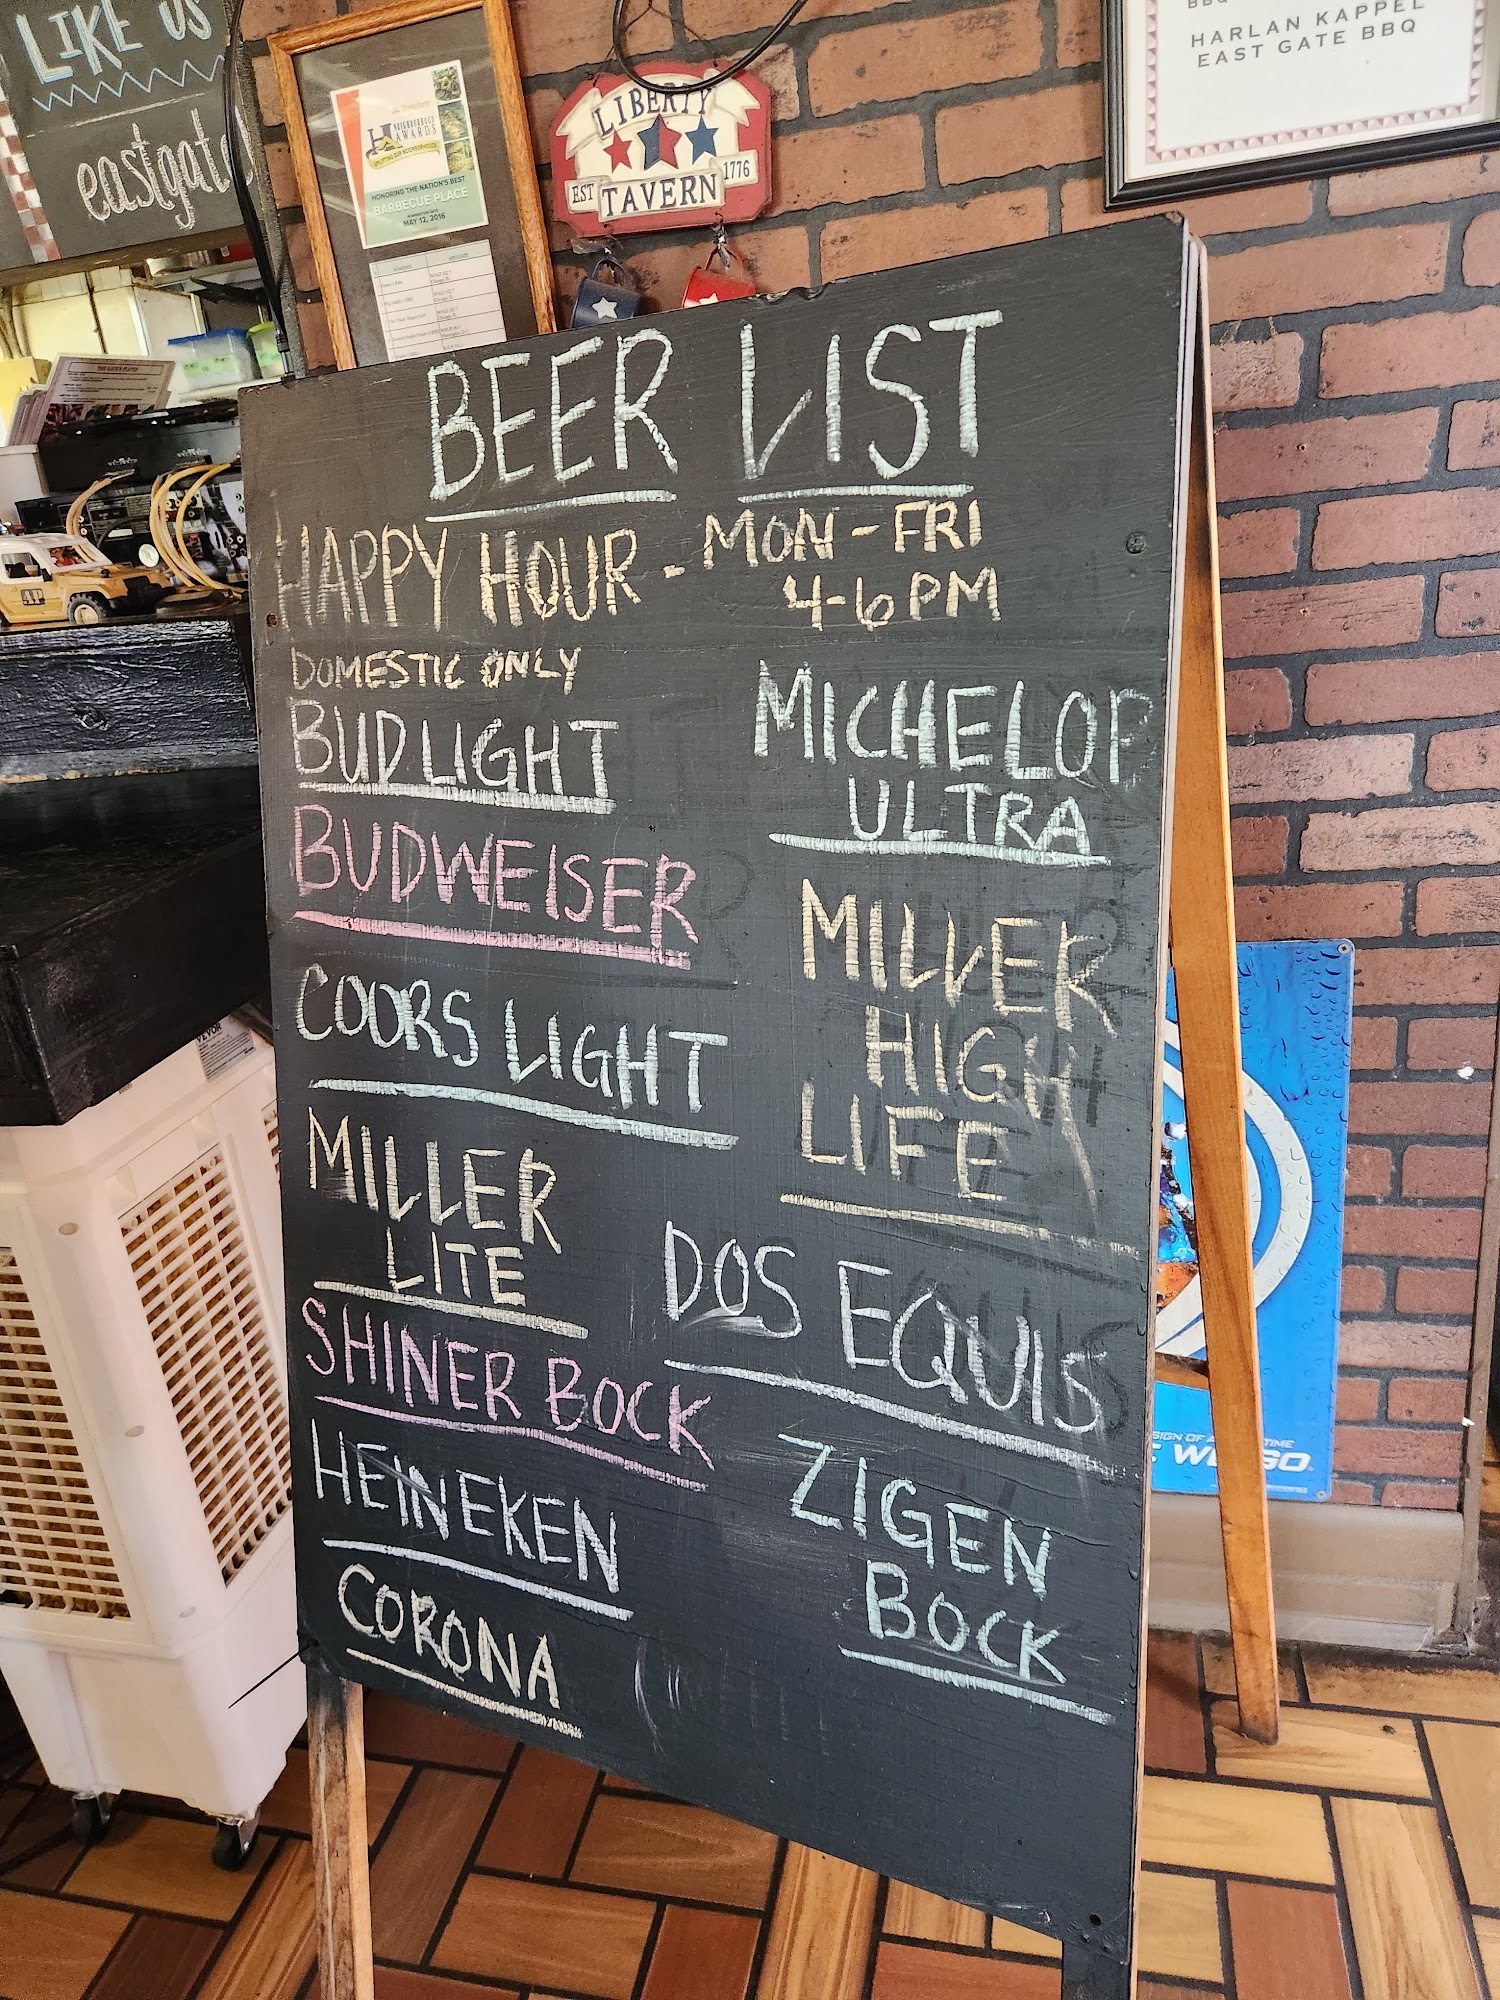 LIKE US
eastgate
NEIGHBORHOOD
AWARDS
HONORING THE NATION'S BEST
BARBECUE PLACE
MAY 12, 2016
LIBERTY
EST 1776
TAVERN
HARLAN KAPPEL
EAST GATE BBQ
BEER LIST
HAPPY HOUR - MON-FRI
4-6PM
DOMESTIC ONLY
BUD LIGHT
BUDWEISER
COORS LIGHT
MILLER
LITE
SHINER BOCK
HEINEKEN
CORONA
MICHELOP
ULTRA
MILLER
HIGH
LIFE
DOS EQUIS
ZIGEN
BOCK
4P
VEVOR